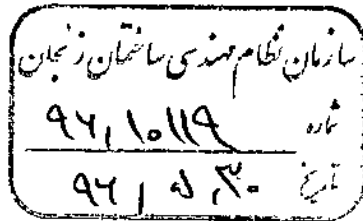 سازمان نظام مهندسی ساختمان زنجان
شماره ۹۶,۱۰۱۱۹
تاریخ ۹۶, ۵, ۳۰